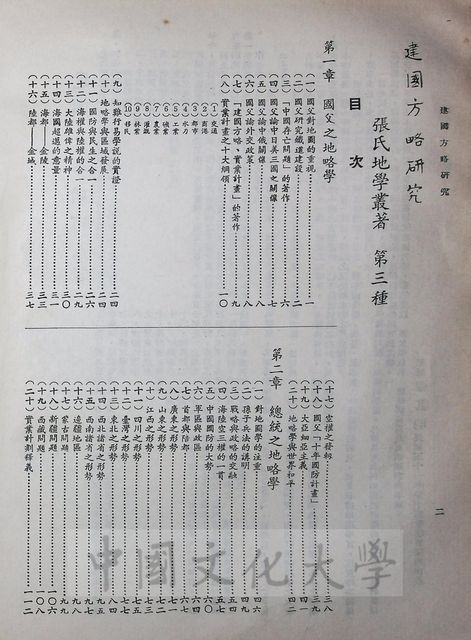 建國方略研究
二
建國方略研究
張氏地學叢著 第三種
目次
第一章 國父之地略學
(一) 國父對地圖的重視 一
(二) 國父研究鐵道建設 二
(三) 「中國存亡問題」的著作 六
(四) 國父論中日美三國之關係 七
(五) 國父論中俄關係 八
(六) 國父論外交政策 八
(七) 「建國方略・實業計畫」的著作 九
(八) 實業計畫之十大綱領 一〇
①交通
②商港
③都市
④水力
⑤工業
⑥礦業
⑦農業
⑧灌溉
⑨林業
⑩移民
(九) 知難行易學說的實證 二四
(十) 地略學與區域發展 二四
(十一) 國防與民生之合一 二六
(十二) 海權與陸權的合一 二九
(十三) 大陸雄偉之精神 三〇
(十四) 海洋超邁的意量 三一
(十五) 海都——金陵 三三
(十六) 陸都——金城 三七
(十七) 空權之發軔 三八
(十八) 國父「十年國防計畫」 三九
(十九) 大亞細亞主義 四一
(二十) 地略學與世界和平 四二
第二章 總統之地略學
(一) 對地圖學的注重 四六
(二) 孫子兵法的講明 四九
(三) 戰略與政略的交融 五四
(四) 海陸空三權的一貫 五七
(五) 中國國防的大勢 五六
(六) 軍區與政區 六一
(七) 首都與陪都 六七
(八) 廣東之形勢 六七
(九) 山東之形勢 七二
(十) 江西之形勢 七三
(十一) 四川之形勢 七五
(十二) 臺灣之形勢 七七
(十三) 東北之形勢 八四
(十四) 西北諸省之形勢 八七
(十五) 西南諸省之形勢 九七
(十六) 邊疆地區 九九
(十七) 蒙古問題 九九
(十八) 新疆問題 一〇六
(十九) 西藏問題 一〇八
(二十) 實業計劃釋義 一一二
中國文化大學